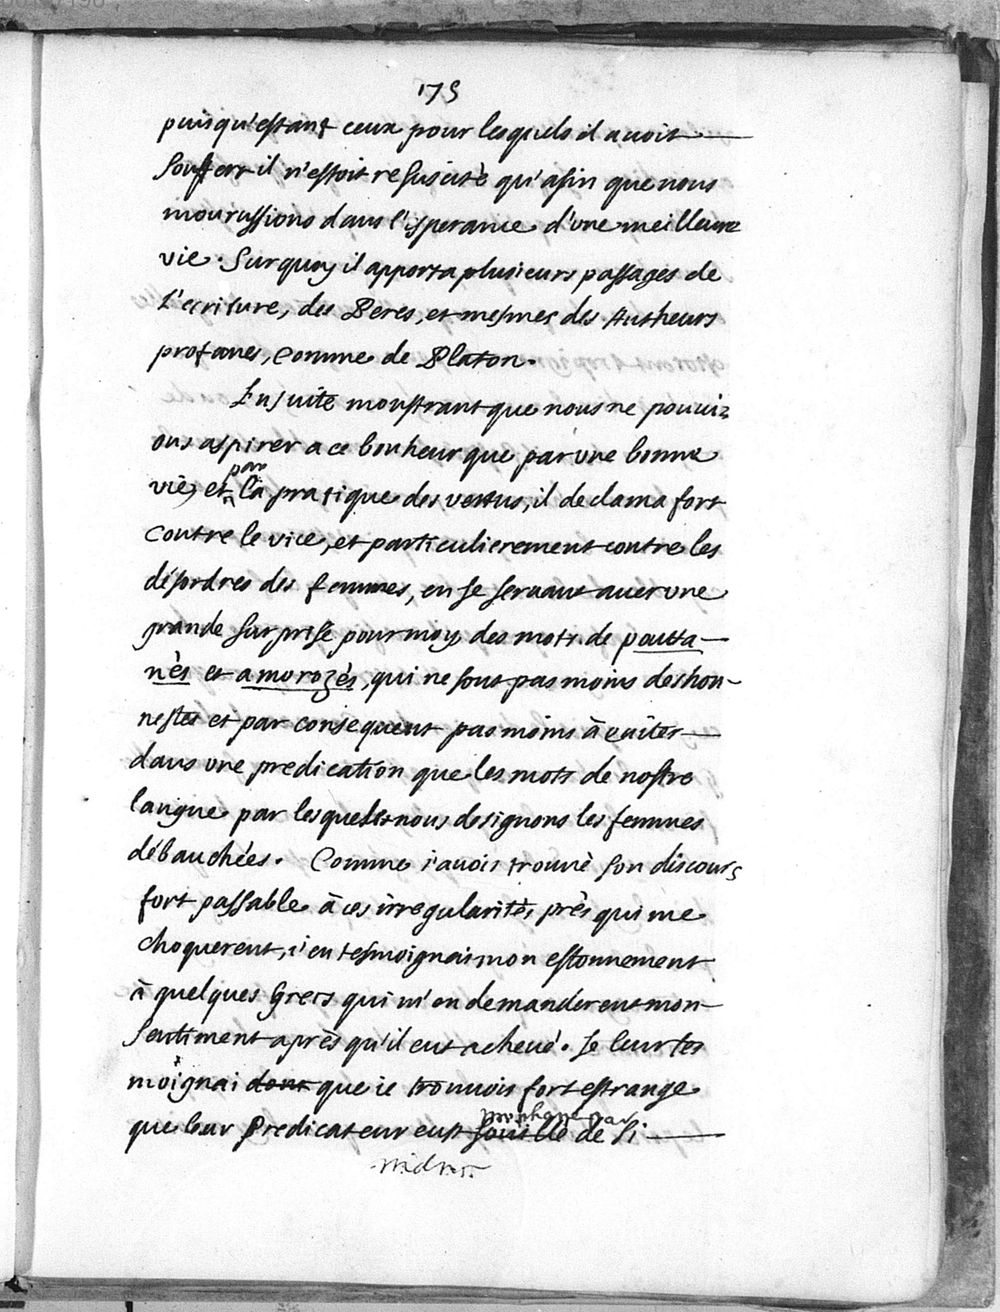 175
puisqu'estant ceux pour lesquels il auoit
souffert il n'estoit resuscité qu'afin que nous
mourussions dans l'esperance d'une meilleure
vie. Surquoy il apporta plusieurs passages de
L'ecriture, des Peres, et mesmes des Autheurs
profanes, comme de Platon.
Ensuite monstrant que nous ne pouui-
ons aspirer a ce bonheur que par une bonne
vie, et par la pratique des vertus, il declama fort
contre le vice, et particulierement contre les
désordres des femmes, en se seruant auec une
grande surprise pour moy des mots de pouta-
nès et amorozès, qui ne sont pas moins deshon-
nestes et par consequent pas moins à euiter
dans une predication que les mots de nostre
langue par lesquels nous designons les femmes
débauchées. Comme i'auois trouué son discours
fort passable à ces irregularités près qui me
choquerent, i'en tesmoignai mon estonnement
à quelques Grecs qui m'en demanderent mon
sentiment après qu'il eut acheué. Je leur tes
moignai donc que ie trouuois fort estrange
que leur Predicateur eust souillé de si
prophané par